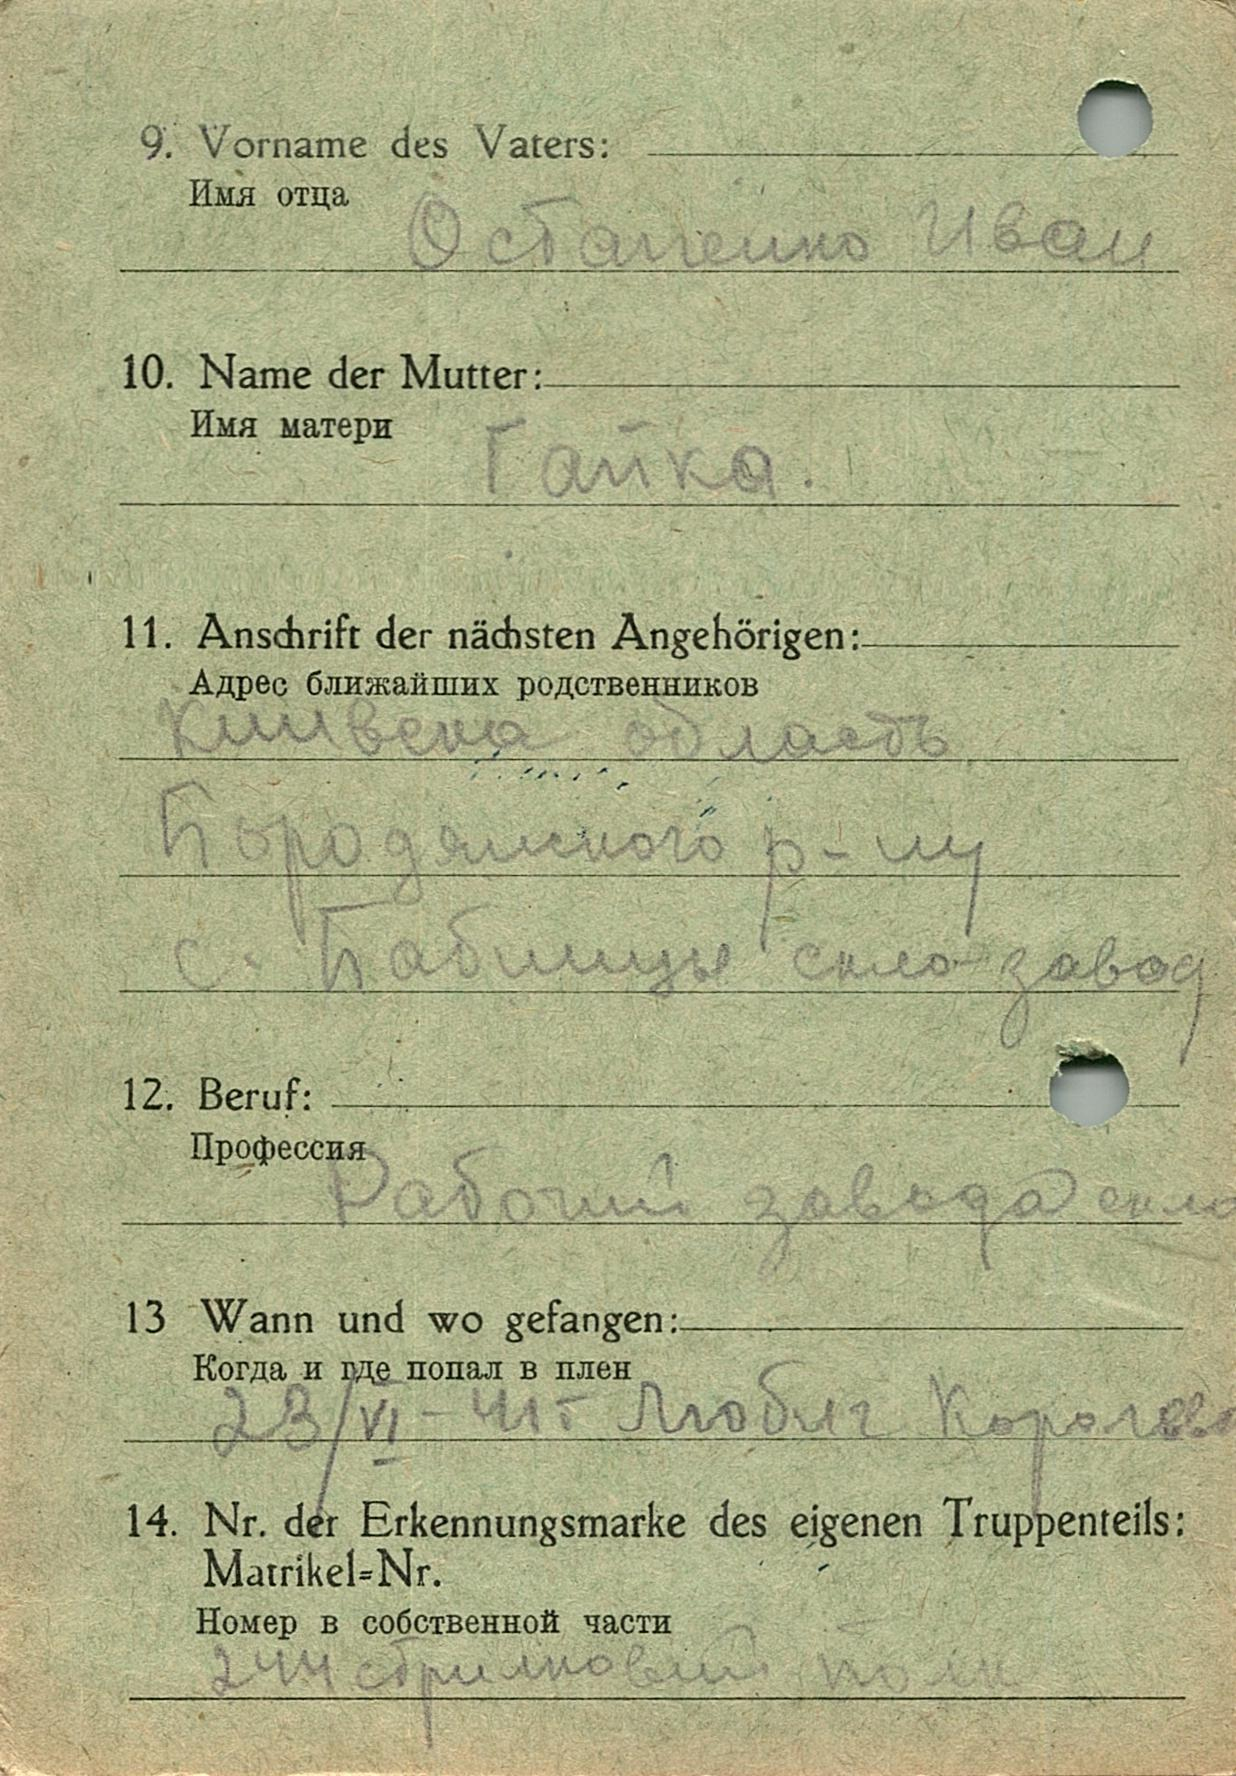 9. Vorname des Vaters:
Имя отца
Остапенко Иван
10. Name der Mutter:
Имя матери
Гапка.
11. Anschrift der nächsten Angehörigen:
Адрес ближайших родственников
Киивска область
Бородянского р-ну
с. Бабинцы скло-завод
12. Beruf:
Профессия
Рабочий завода скло
13 Wann und wo gefangen:
Когда и где попал в плен
23/VI-41г
14. Nr. der Erkennungsmarke des eigenen Truppenteils:
Matrikel=Nr.
Номер в собственной части
244 стрилковий полк